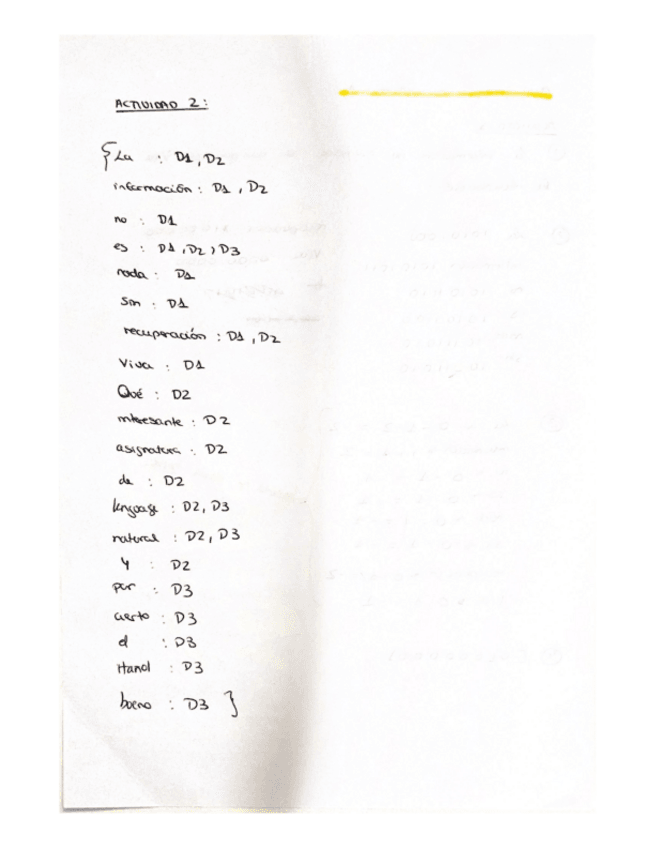 ACTIVIDAD 2:
{ La : D1, D2
información : D1, D2
no : D1
es : D1, D2, D3
nada : D1
Sin : D1
recuperación : D1, D2
Viva : D1
Qué : D2
interesante : D2
asignatura : D2
de : D2
lenguaje : D2, D3
natural : D2, D3
Y : D2
por : D3
cierto : D3
el : D3
Hanol : D3
bueno : D3 }